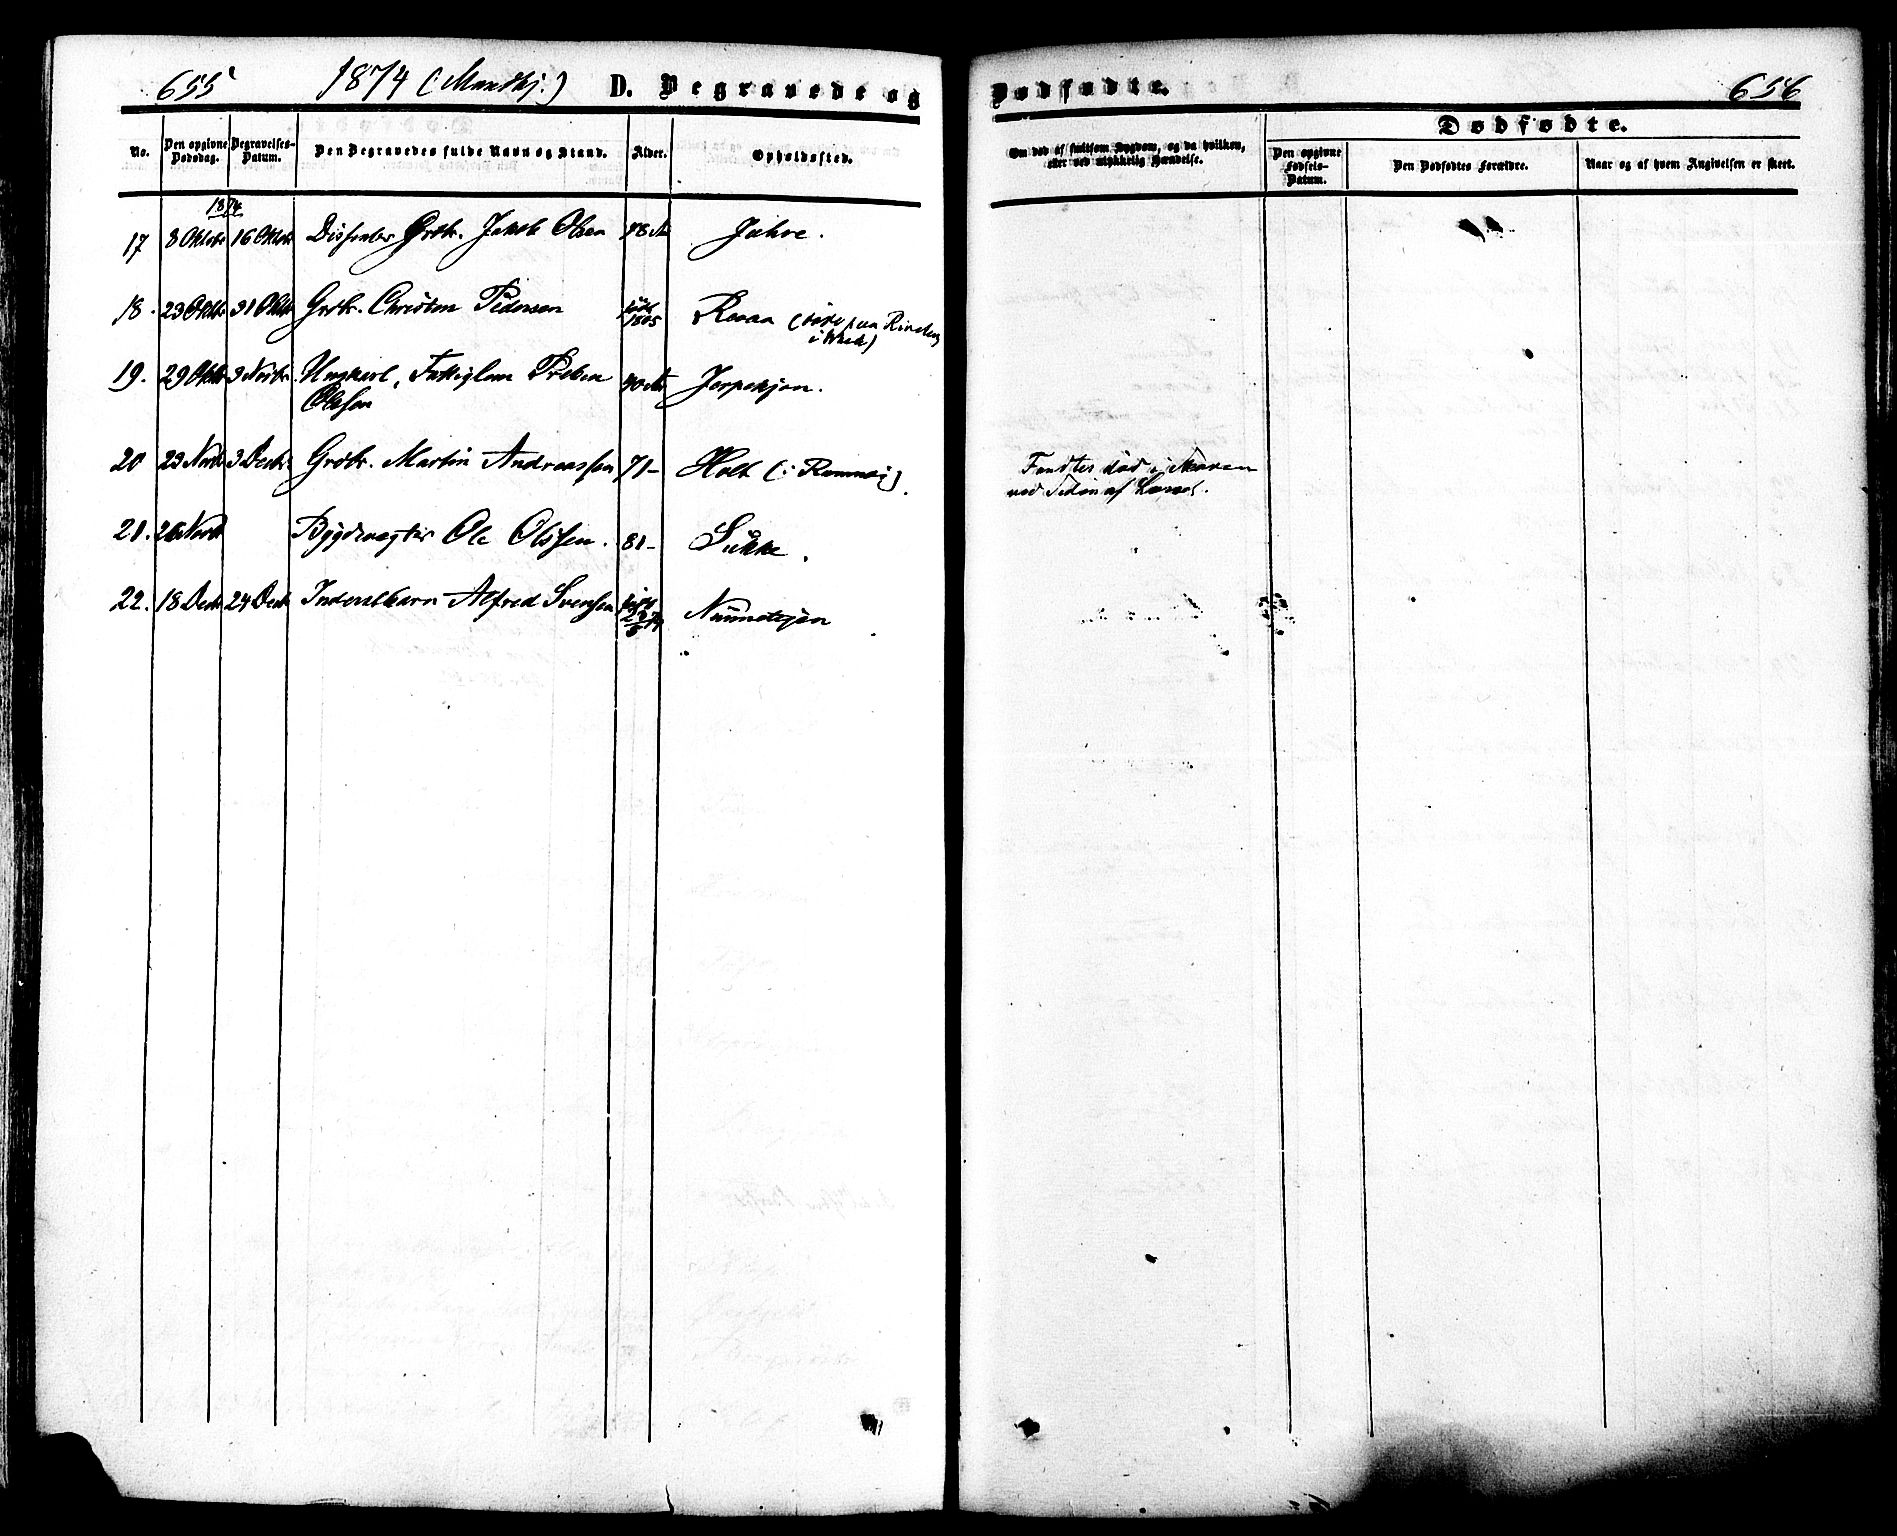 655 1874 (: Mandkj:) D. Begravede og
No. Den opgivne Dødsdag. Begravelses-Datum. Den Begravedes fulde Navn og Stand. Alder. Opholdssted.
1874
17 8 Oktbr 16 Oktbr Dissenter Grdbr. Jakob Olsen 78 Aar Jahre.
18. 23 Oktbr 31 Oktbr Grdbr. Christen Pedersen født 1805 Raaen
19. 29 Oktbr 3 Novbr. Ungkarl, Fattiglem Preben 40 Aar
Olsson
20 23 Novbr 3 Decbr. Grdbr. Martin Andreassen 71 - Holt (: Ramnæs)
21. 26 Novbr Bygdevægter Ole Olssen. 81 - Sukke.
22. 18 Decbr 24 Decbr Inderstbarn Alfred Svensen født
Dødfødte. 656
Dødfødte.
Om død af smitsom Sygdom, og da hvilken, eller ved ulykkelig Hændelse. Den opgivne Fødsels-Datum. Den Dødfødtes Forældre. Naar og af hvem Angivelsen er skeet.
Fandtes død i Skoven
ved Siden af Læsset.